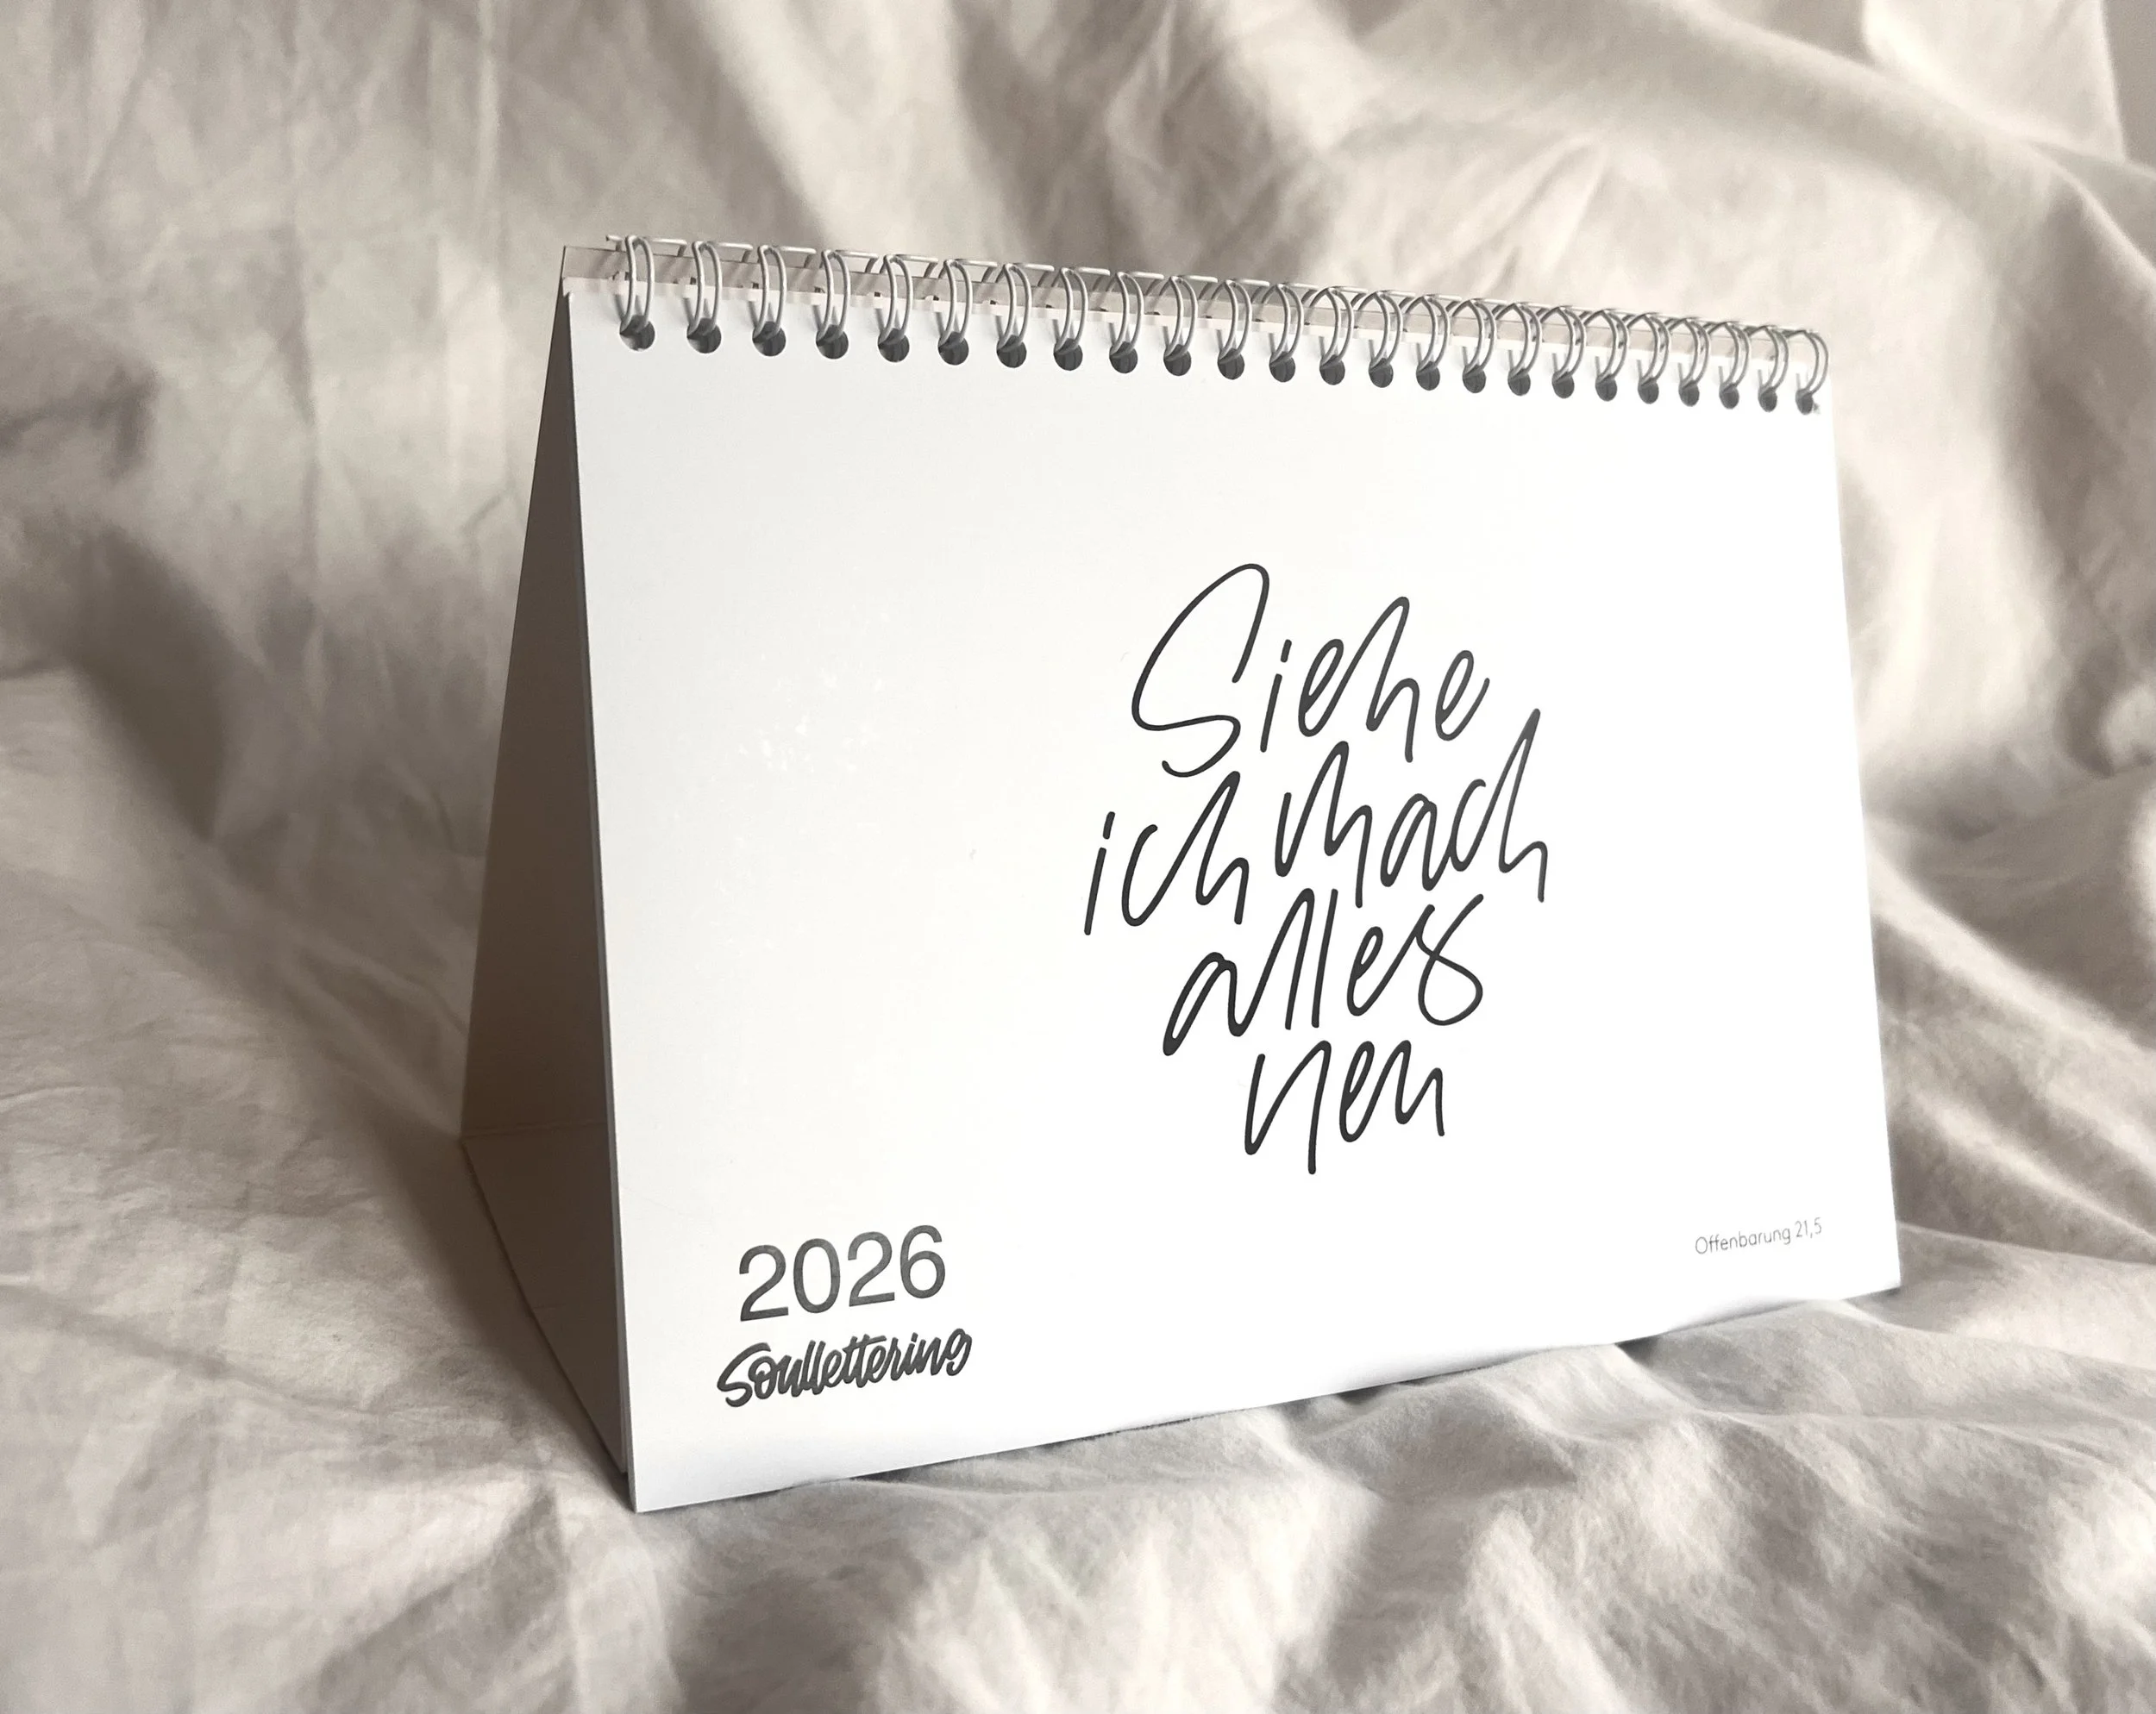 Siehe
ich mach
alles
neu
2026
Soullettering
Offenbarung 21,5